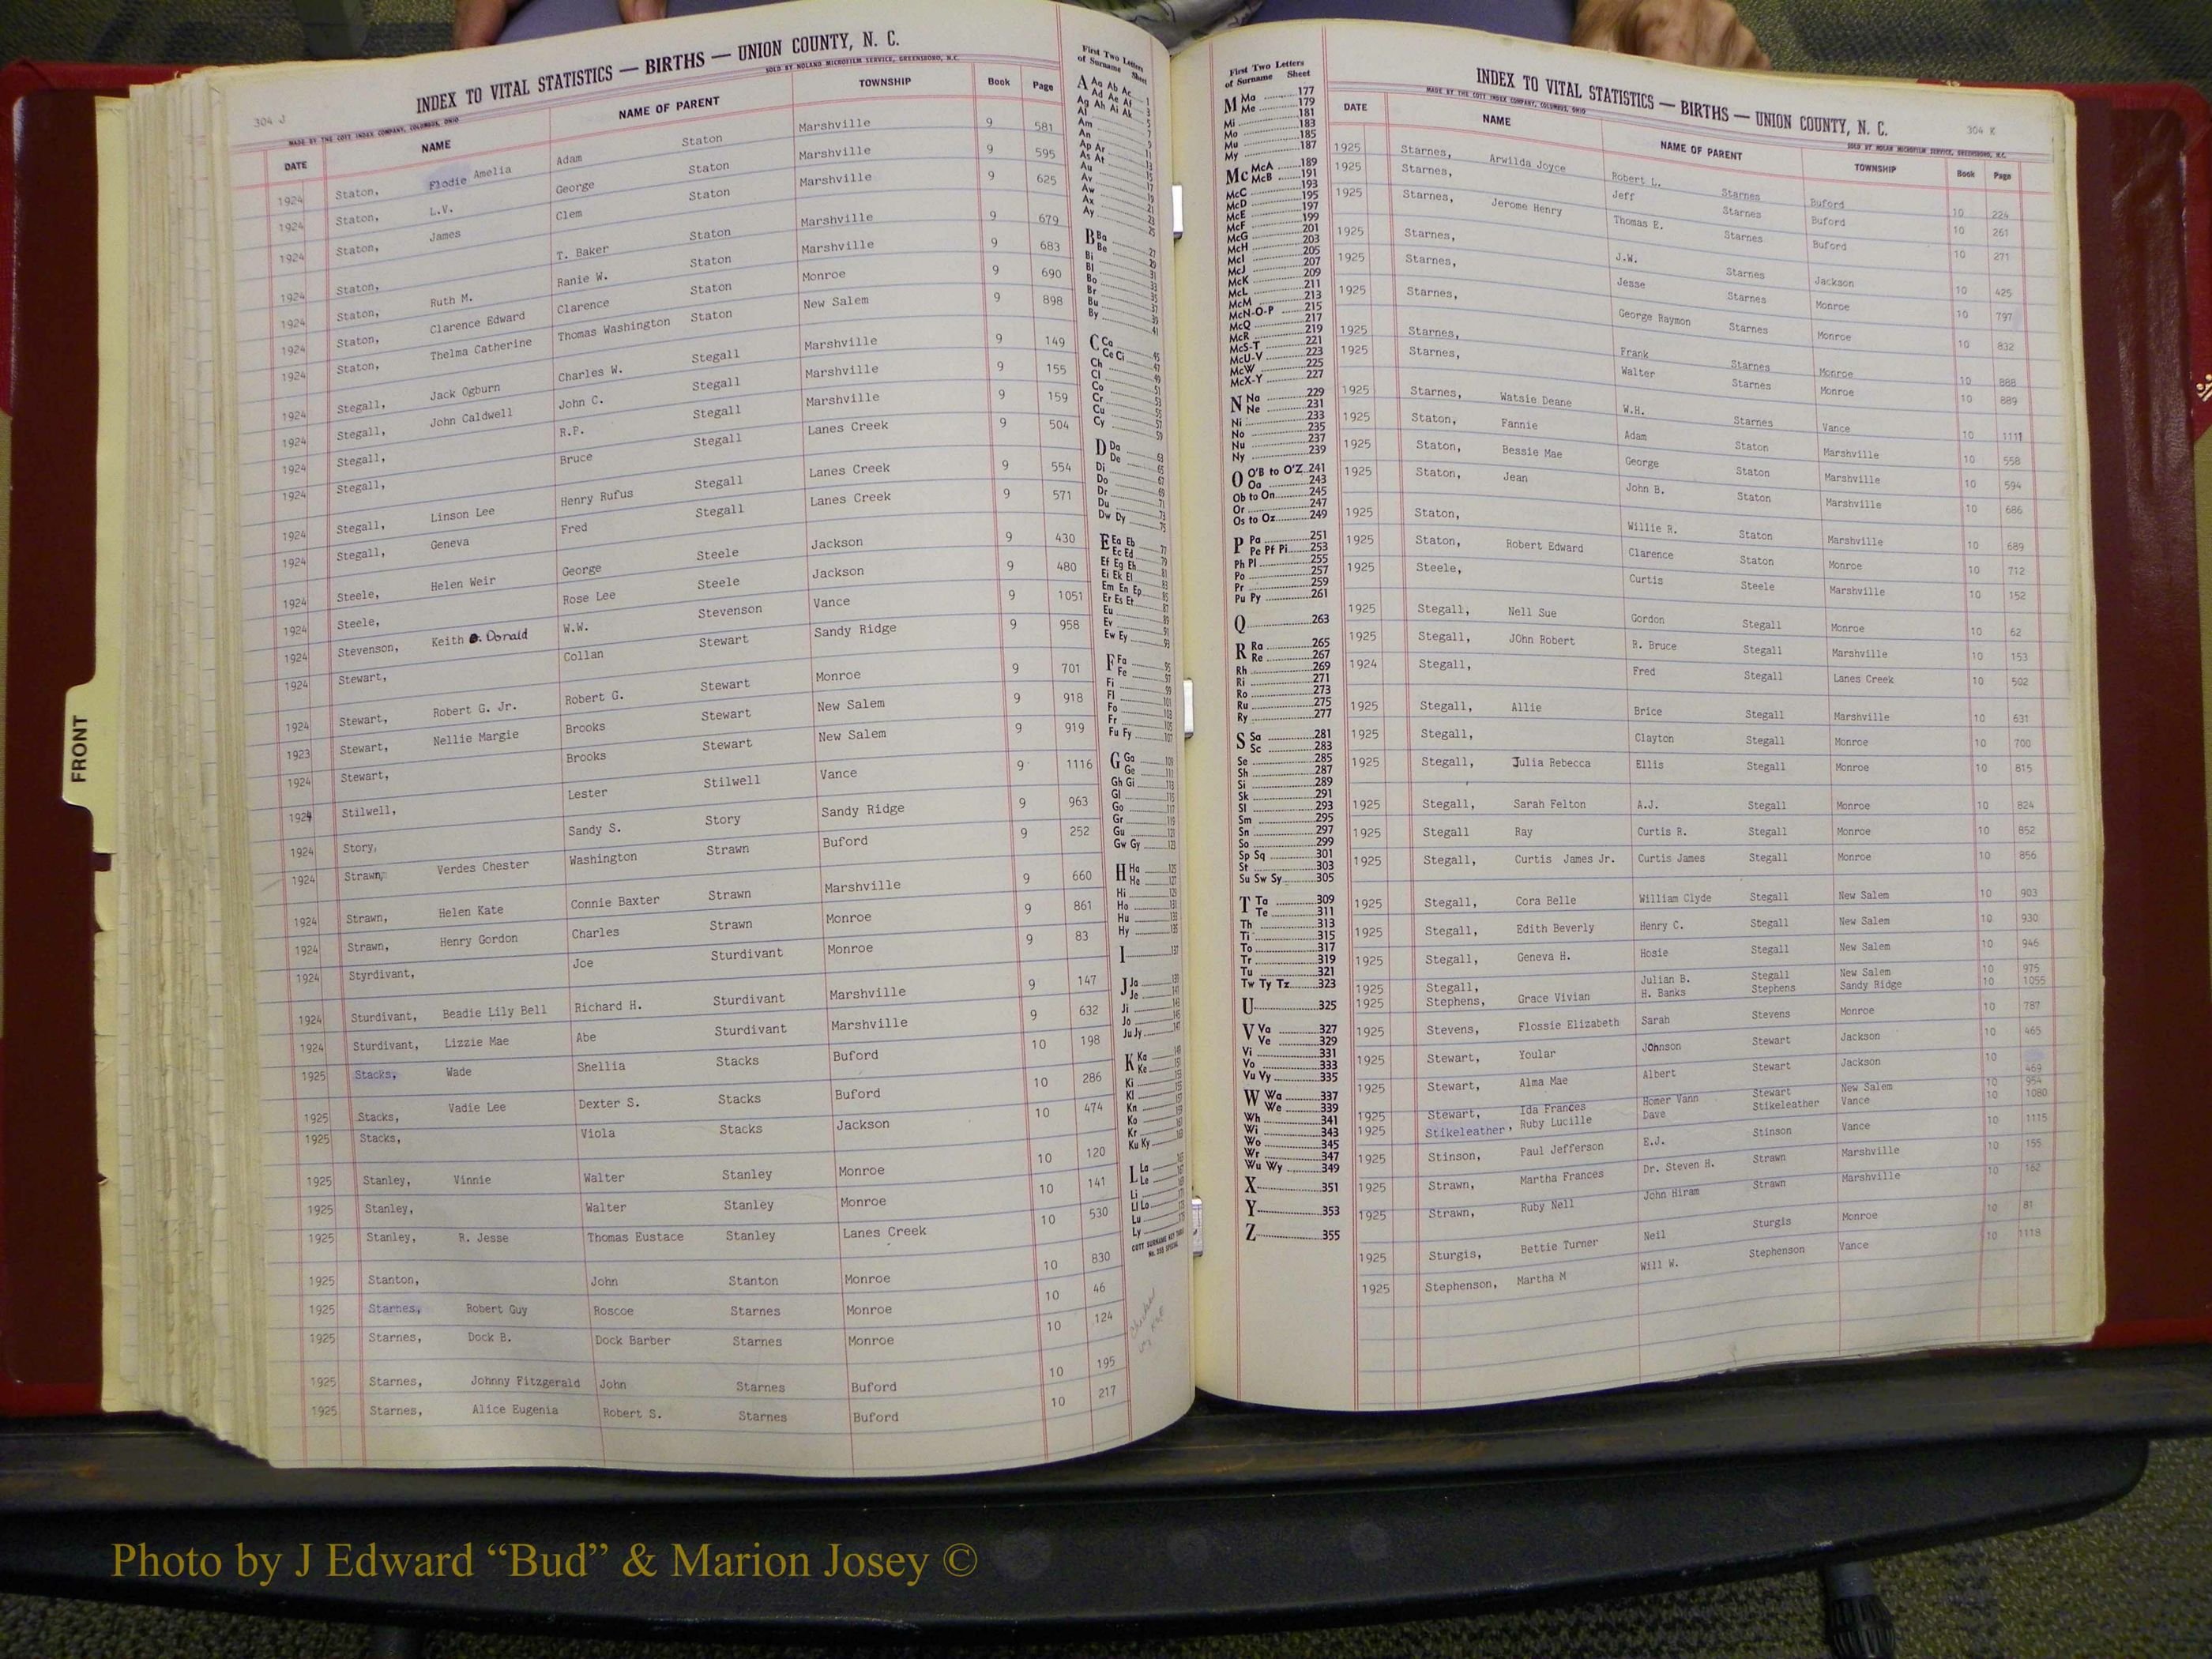 304 J
INDEX TO VITAL STATISTICS — BIRTHS — UNION COUNTY, N. C.
MADE BY THE COTT INDEX COMPANY, COLUMBUS, OHIO SOLD BY NOLAND MICROFILM SERVICE, GREENSBORO, N.C.
DATE NAME NAME OF PARENT TOWNSHIP Book Page
1924 Staton, Elodie Amelia Adam Staton Marshville 9 581
1924 Staton, L.V. George Staton Marshville 9 595
1924 Staton, James Clem Staton Marshville 9 625
1924 Staton, T. Baker Staton Marshville 9 679
1924 Staton, Ruth M. Ranie W. Staton Marshville 9 683
1924 Staton, Clarence Edward Clarence Staton Monroe 9 690
1924 Staton, Thelma Catherine Thomas Washington Staton New Salem 9 898
1924 Stegall, Jack Ogburn Charles W. Stegall Marshville 9 149
1924 Stegall, John Caldwell John C. Stegall Marshville 9 155
1924 Stegall, R.P. Stegall Marshville 9 159
1924 Stegall, Bruce Stegall Lanes Creek 9 504
1924 Stegall, Linson Lee Henry Rufus Stegall Lanes Creek 9 554
1924 Stegall, Geneva Fred Stegall Lanes Creek 9 571
1924 Steele, Helen Weir George Steele Jackson 9 430
1924 Steele, Rose Lee Steele Jackson 9 480
1924 Stevenson, Keith Donald W.W. Stevenson Vance 9 1051
1924 Stewart, Collan Stewart Sandy Ridge 9 958
1924 Stewart, Robert G. Jr. Robert G. Stewart Monroe 9 701
1923 Stewart, Nellie Margie Brooks Stewart New Salem 9 918
1924 Stewart, Brooks Stewart New Salem 9 919
1924 Stilwell, Lester Stilwell Vance 9 1116
1924 Story, Sandy S. Story Sandy Ridge 9 963
1924 Strawn, Verdes Chester Washington Strawn Buford 9 252
1924 Strawn, Helen Kate Connie Baxter Strawn Marshville 9 660
1924 Strawn, Henry Gordon Charles Strawn Monroe 9 861
1924 Styrdivant, Joe Sturdivant Monroe 9 83
1924 Sturdivant, Beadie Lily Bell Richard H. Sturdivant Marshville 9 147
1924 Sturdivant, Lizzie Mae Abe Sturdivant Marshville 9 632
1925 Stacks, Wade Shellia Stacks Buford 10 198
1925 Stacks, Vadie Lee Dexter S. Stacks Buford 10 286
1925 Stacks, Viola Stacks Jackson 10 474
1925 Stanley, Vinnie Walter Stanley Monroe 10 120
1925 Stanley, Walter Stanley Monroe 10 141
1925 Stanley, R. Jesse Thomas Eustace Stanley Lanes Creek 10 530
1925 Stanton, John Stanton Monroe 10 830
1925 Starnes, Robert Guy Roscoe Starnes Monroe 10 46
1925 Starnes, Dock B. Dock Barber Starnes Monroe 10 124
1925 Starnes, Johnny Fitzgerald John Starnes Buford 10 195
1925 Starnes, Alice Eugenia Robert S. Starnes Buford 10 217
FRONT
First Two Letters
of Surname Sheet
A Aa Ab Ac 1
Ad Ae Af 3
Ag Ah Ai Ak 5
Al 7
Am 9
An 11
Ap Ar 13
As At 15
Au 17
Av 19
Aw 21
Ax 23
Ay 25
B Ba 27
Be 29
Bi 31
Bl 33
Bo 35
Br 37
Bu 39
By 41
C Ca 45
Ce Ci 47
Ch 49
Cl 51
Co 53
Cr 55
Cu 57
Cy 59
D Da 63
De 65
Di 67
Do 69
Dr 71
Du 73
Dw Dy 75
E Ea Eb 77
Ec Ed 79
Ef Eg Eh 81
Ei Ek El 83
Em En Ep 85
Er Es Et 87
Eu 89
Ev 91
Ew Ey 93
F Fa 95
Fe 97
Fi 99
Fl 101
Fo 103
Fr 105
Fu Fy 107
G Ga 109
Ge 111
Gh Gi 113
Gl 115
Go 117
Gr 119
Gu 121
Gw Gy 123
H Ha 125
He 127
Hi 129
Ho 131
Hu 133
Hy 135
I 137
J Ja 139
Je 141
Ji 143
Jo 145
Ju Jy 147
K Ka 149
Ke 151
Ki 153
Kl 155
Kn 157
Ko 159
Kr 161
Ku Ky 163
L La 165
Le 167
Li 169
Ll Lo 171
Lu 173
Ly 175
First Two Letters
of Surname Sheet
M Ma 177
Me 179
Mi 181
Mo 183
Mu 185
My 187
Mc McA 189
McB 191
McC 193
McD 195
McE 197
McF 199
McG 201
McH 203
McI 205
McJ 207
McK 209
McL 211
McM 213
McN-O-P 215
McQ 217
McR 219
McS-T 221
McU-V 223
McW 225
McX-Y 227
N Na 229
Ne 231
Ni 233
No 235
Nu 237
Ny 239
O O'B to O'Z 241
Oa 243
Ob to On 245
Or 247
Os to Oz 249
P Pa 251
Pe Pf Pi 253
Ph Pl 255
Po 257
Pr 259
Pu Py 261
Q 263
R Ra 265
Re 267
Rh 269
Ri 271
Ro 273
Ru 275
Ry 277
S Sa 281
Sc 283
Se 285
Sh 287
Si 289
Sk 291
Sl 293
Sm 295
Sn 297
So 299
Sp Sq 301
St 303
Su Sw Sy 305
T Ta 309
Te 311
Th 313
Ti 315
To 317
Tr 319
Tu 321
Tw Ty Tz 323
U 325
V Va 327
Ve 329
Vi 331
Vo 333
Vu Vy 335
W Wa 337
We 339
Wh 341
Wi 343
Wo 345
Wr 347
Wu Wy 349
X 351
Y 353
Z 355
INDEX TO VITAL STATISTICS — BIRTHS — UNION COUNTY, N. C.
304 K
MADE BY THE COTT INDEX COMPANY, COLUMBUS, OHIO SOLD BY NOLAN MICROFILM SERVICE, GREENSBORO, N.C.
DATE NAME NAME OF PARENT TOWNSHIP Book Page
1925 Starnes, Arwilda Joyce Robert L. Starnes Buford 10 224
1925 Starnes, Jeff Starnes Buford 10 261
1925 Starnes, Jerome Henry Thomas E. Starnes Buford 10 271
1925 Starnes, J.W. Starnes Jackson 10 425
1925 Starnes, Jesse Starnes Monroe 10 797
1925 Starnes, George Raymon Starnes Monroe 10 832
1925 Starnes, Frank Starnes Monroe 10 888
1925 Starnes, Walter Starnes Monroe 10 889
1925 Starnes, Watsie Deane W.H. Starnes Vance 10 1111
1925 Staton, Fannie Adam Staton Marshville 10 558
1925 Staton, Bessie Mae George Staton Marshville 10 594
1925 Staton, Jean John B. Staton Marshville 10 686
1925 Staton, Willie R. Staton Marshville 10 689
1925 Staton, Robert Edward Clarence Staton Monroe 10 712
1925 Steele, Curtis Steele Marshville 10 152
1925 Stegall, Nell Sue Gordon Stegall Monroe 10 62
1925 Stegall, JOhn Robert R. Bruce Stegall Marshville 10 153
1924 Stegall, Fred Stegall Lanes Creek 10 502
1925 Stegall, Allie Brice Stegall Marshville 10 631
1925 Stegall, Clayton Stegall Monroe 10 700
1925 Stegall, Julia Rebecca Ellis Stegall Monroe 10 815
1925 Stegall, Sarah Felton A.J. Stegall Monroe 10 824
1925 Stegall Ray Curtis R. Stegall Monroe 10 852
1925 Stegall, Curtis James Jr. Curtis James Stegall Monroe 10 856
1925 Stegall, Cora Belle William Clyde Stegall New Salem 10 903
1925 Stegall, Edith Beverly Henry C. Stegall New Salem 10 930
1925 Stegall, Geneva H. Hosie Stegall New Salem 10 946
1925 Stegall, Julian B. Stegall New Salem 10 975
1925 Stephens, Grace Vivian H. Banks Stephens Sandy Ridge 10 1055
1925 Stevens, Flossie Elizabeth Sarah Stevens Monroe 10 787
1925 Stewart, Yoular JOhnson Stewart Jackson 10 465
1925 Stewart, Alma Mae Albert Stewart Jackson 10 469
1925 Stewart, Ida Frances Homer Vann Stewart New Salem 10 954
1925 Stikeleather, Ruby Lucille Dave Stikeleather Vance 10 1080
1925 Stinson, Paul Jefferson E.J. Stinson Vance 10 1115
1925 Strawn, Martha Frances Dr. Steven H. Strawn Marshville 10 155
1925 Strawn, Ruby Nell John Hiram Strawn Marshville 10 162
1925 Sturgis, Bettie Turner Neil Sturgis Monroe 10 81
1925 Stephenson, Martha M Will W. Stephenson Vance 10 1118
Photo by J Edward “Bud” & Marion Josey ©